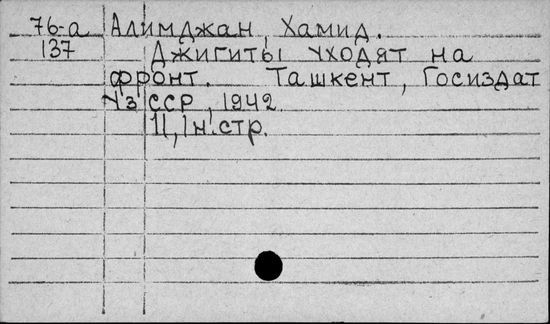 76-а Алимджан, Хамид.
137 Джигиты уходят на
фронт. Ташкент, Госиздат
Уз ССР, 1942
11, 1н. стр.